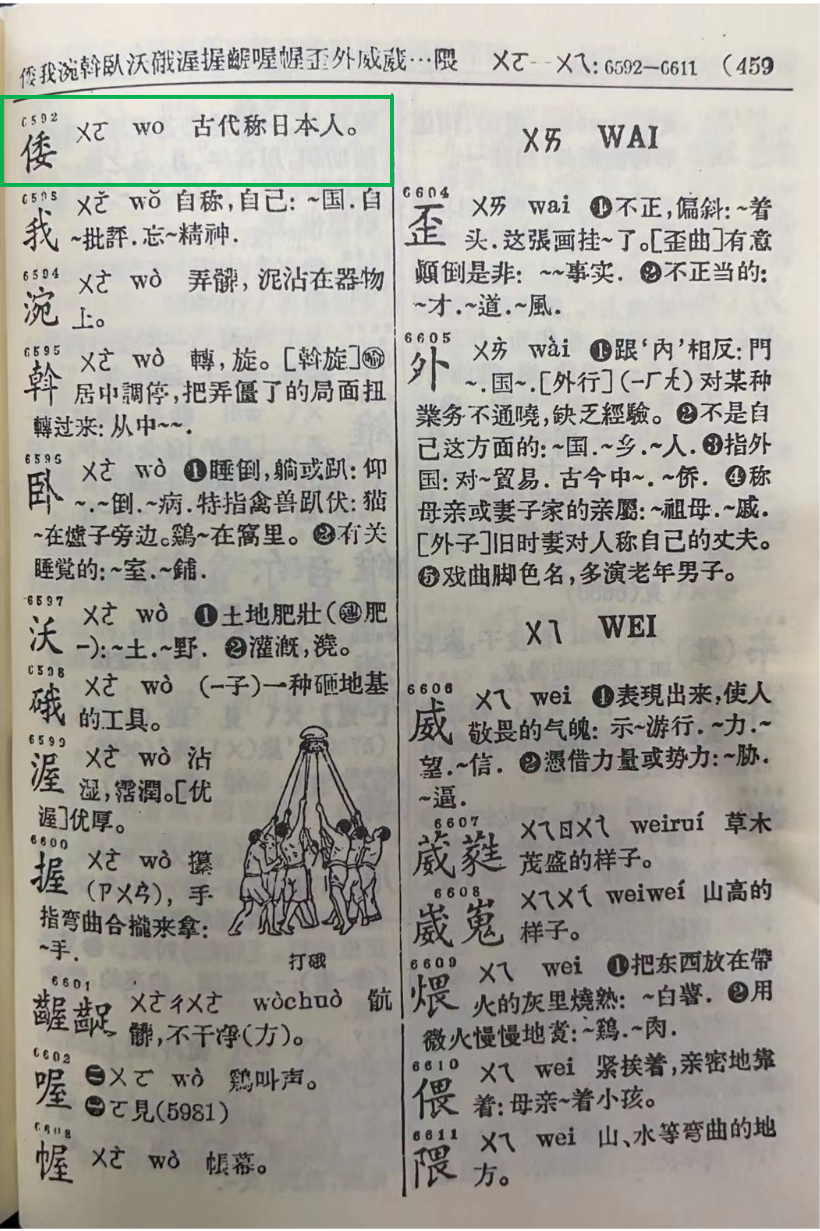 倭我涴斡臥沃硪渥握齷喔幄歪外威葳…隈 ㄨㄛ--ㄨㄟ: 6592—6611 (459
6592
倭 ㄨㄛ wo 古代称日本人。
6593
我 ㄨㄛˇ wǒ 自称,自己: ~国.自
~批評.忘~精神.
6594
涴 ㄨㄛˋ wò 弄髒, 泥沾在器物
上。
6595
斡 ㄨㄛˋ wò 轉, 旋。[斡旋]㊥
居中調停, 把弄僵了的局面扭
轉过来: 从中~~.
6596
卧 ㄨㄛˋ wò ❶睡倒, 躺或趴: 仰
~.~倒.~病.特指禽兽趴伏: 猫
~在爐子旁边。鷄~在窩里。 ❷有关
睡觉的: ~室.~鋪.
6597
沃 ㄨㄛˋ wò ❶土地肥壯(㊥肥
—):~土.~野. ❷灌漑, 澆。
6598
硪 ㄨㄛˋ wò (—子)一种砸地基
的工具。
6599
渥 ㄨㄛˋ wò 沾
湿, 霑潤。[优
渥]优厚。
6600
握 ㄨㄛˋ wò 攥
(ㄗㄨㄢˋ), 手
指弯曲合攏来拿:
~手.
打硪
6601
齷齪 ㄨㄛˋㄔㄨㄛˋ wòchuò 骯
髒, 不干净(方)。
6602
喔 ㊀ㄨㄛ wò 鷄叫声。
㊁ㄛ見(5981)
6603
幄 ㄨㄛˋ wò 帳幕。
ㄨㄞ WAI
6604
歪 ㄨㄞ wai ❶不正, 偏斜: ~着
头.这張画挂~了。[歪曲]有意
顚倒是非: ~~事实. ❷不正当的:
~才.~道.~風.
6605
外 ㄨㄞˋ wài ❶跟‘內’相反: 門
~.国~.[外行](—ㄏㄤˊ) 对某种
業务不通曉, 缺乏經驗。 ❷不是自
己这方面的: ~国.~乡.~人. ❸指外
国: 对~貿易. 古今中~.~侨. ❹称
母亲或妻子家的亲屬: ~祖母.~戚.
[外子]旧时妻对人称自己的丈夫。
❺戏曲脚色名, 多演老年男子。
ㄨㄟ WEI
6606
威 ㄨㄟ wei ❶表現出来, 使人
敬畏的气魄: 示~游行. ~力.~
望.~信. ❷憑借力量或势力: ~胁.
~逼.
6607
葳蕤 ㄨㄟㄖㄨㄟˊ weiruí 草木
茂盛的样子。
6608
崴嵬 ㄨㄟㄨㄟˊ weiweí 山高的
样子。
6609
煨 ㄨㄟ wei ❶把东西放在帶
火的灰里燒熟: ~白薯. ❷用
微火慢慢地煮: ~鷄.~肉.
6610
偎 ㄨㄟ wei 紧挨着, 亲密地靠
着: 母亲~着小孩。
6611
隈 ㄨㄟ wei 山、水等弯曲的地
方。